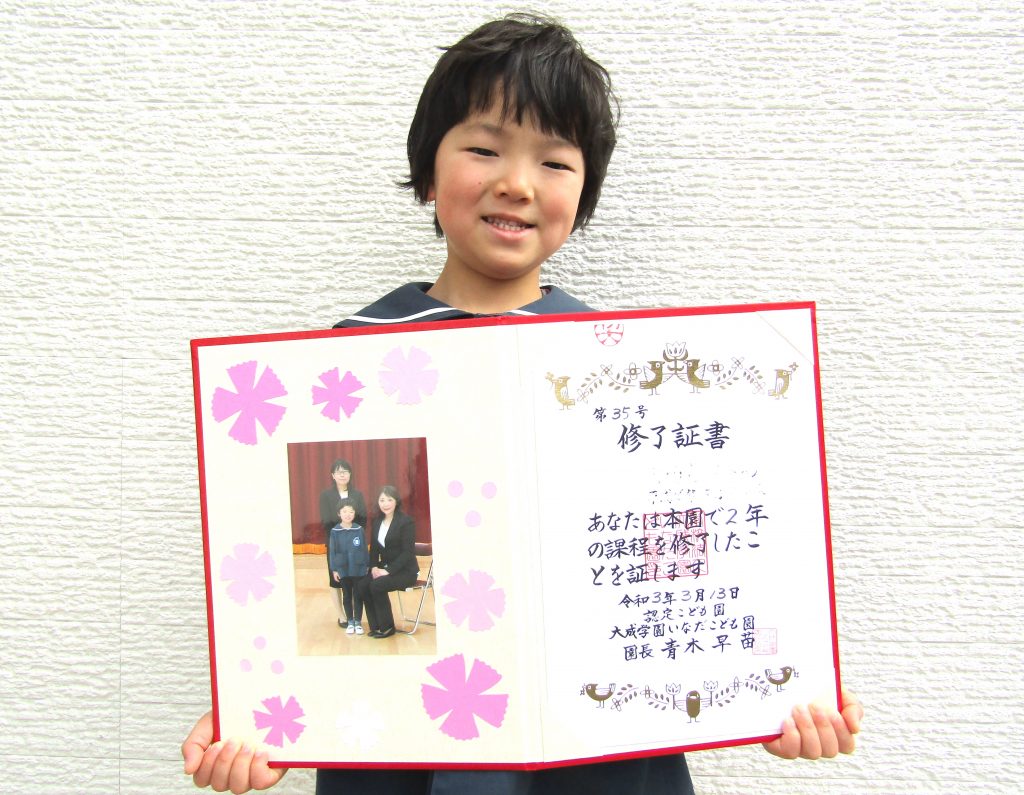 第35号
修了証書
あなたは本園で2年
の課程を修了したこ
とを証します
令和3年3月13日
認定こども園
大成学園いなだこども園
園長 青木 早苗